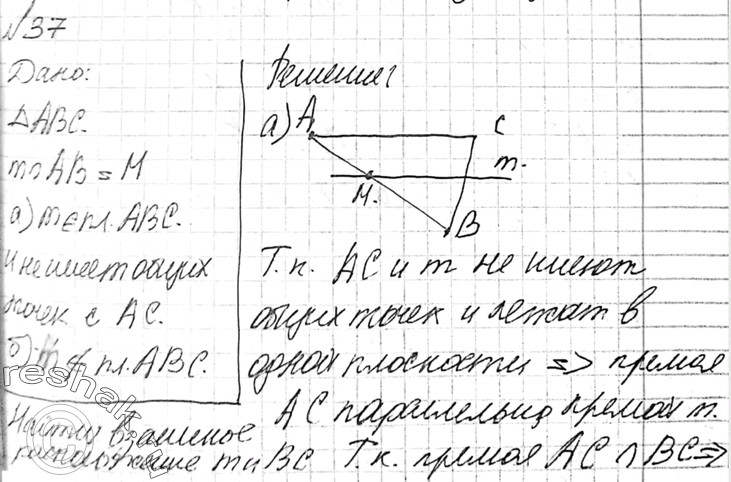 №37
Дано:
△ABC.
m∩AB = M
а) m∈пл. ABC.
и не имеет общих
точек с AC.
б) m∉ пл. ABC.
Найти взаимное
расположение m и BC
Решение:
а) A C
m.
M.
B
Т.к. AC и m не имеют
общих точек и лежат в
одной плоскости => прямая
AC параллельна прямой m.
Т.к. прямая AC ∩ BC =>
reshak